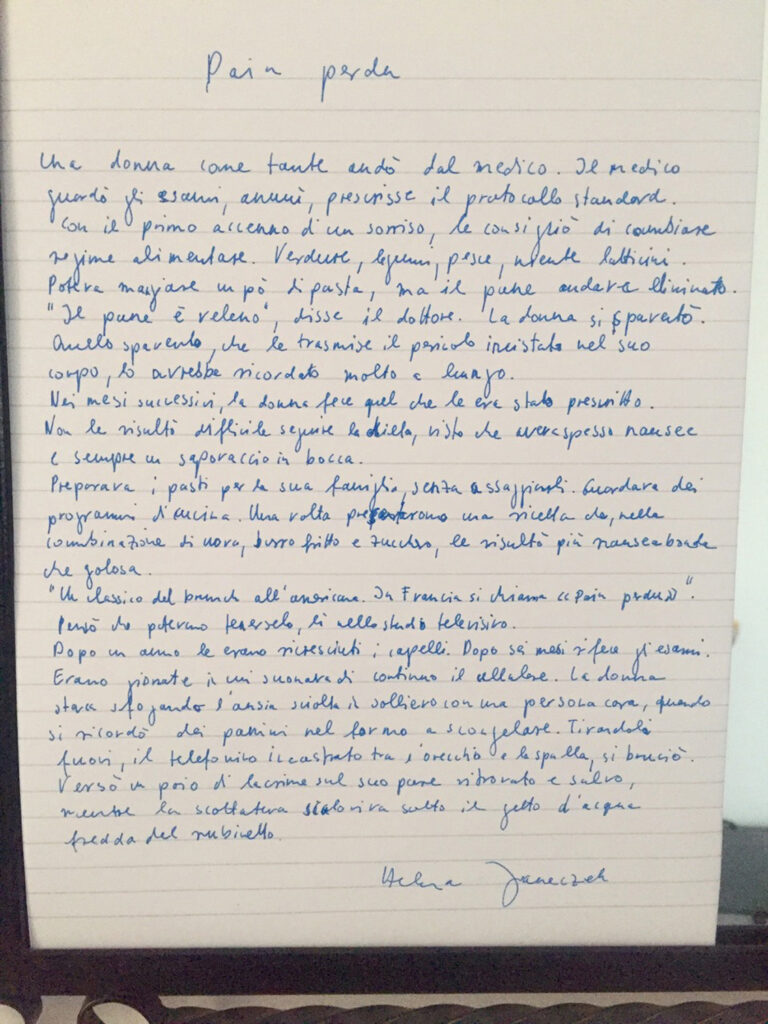 Pain perdu
Una donna come tante andò dal medico. Il medico
guardò gli esami, annuì, prescrisse il protocollo standard.
Con il primo accenno di un sorriso, le consigliò di cambiare
regime alimentare. Verdure, legumi, pesce, niente latticini.
Poteva mangiare un pò di pasta, ma il pane andava eliminato.
"Il pane è veleno", disse il dottore. La donna si spaventò.
Quello spavento, che le trasmise il pericolo incistato nel suo
corpo, lo avrebbe ricordato molto a lungo.
Nei mesi successivi, la donna fece quel che le era stato prescritto.
Non le risultò difficile seguire la dieta, visto che aveva spesso nausee
e sempre un saporaccio in bocca.
Preparava i pasti per la sua famiglia, senza assaggiarli. Guardava dei
programmi di cucina. Una volta presentarono una ricetta che, nella
combinazione di uova, burro fritto e zucchero, le risultò più nauseabonda
che golosa.
"Un classico del brunch all'americana. In Francia si chiama «Pain perdu»".
Pensò che potevano tenerselo, lì nello studio televisivo.
Dopo un anno le erano ricresciuti i capelli. Dopo sei mesi rifece gli esami.
Erano giornate in cui suonava di continuo il cellulare. La donna
stava sfogando l'ansia sciolta in sollievo con una persona cara, quando
si ricordò dei panini nel forno a scongelare. Tirandoli
fuori, il telefonino incastrato tra l'orecchio e la spalla, si bruciò.
Versò un paio di lacrime sul suo pane ritrovato e salvo,
mentre la scottatura scoloriva sotto il getto d'acqua
fredda del rubinetto.
Helena Janeczek